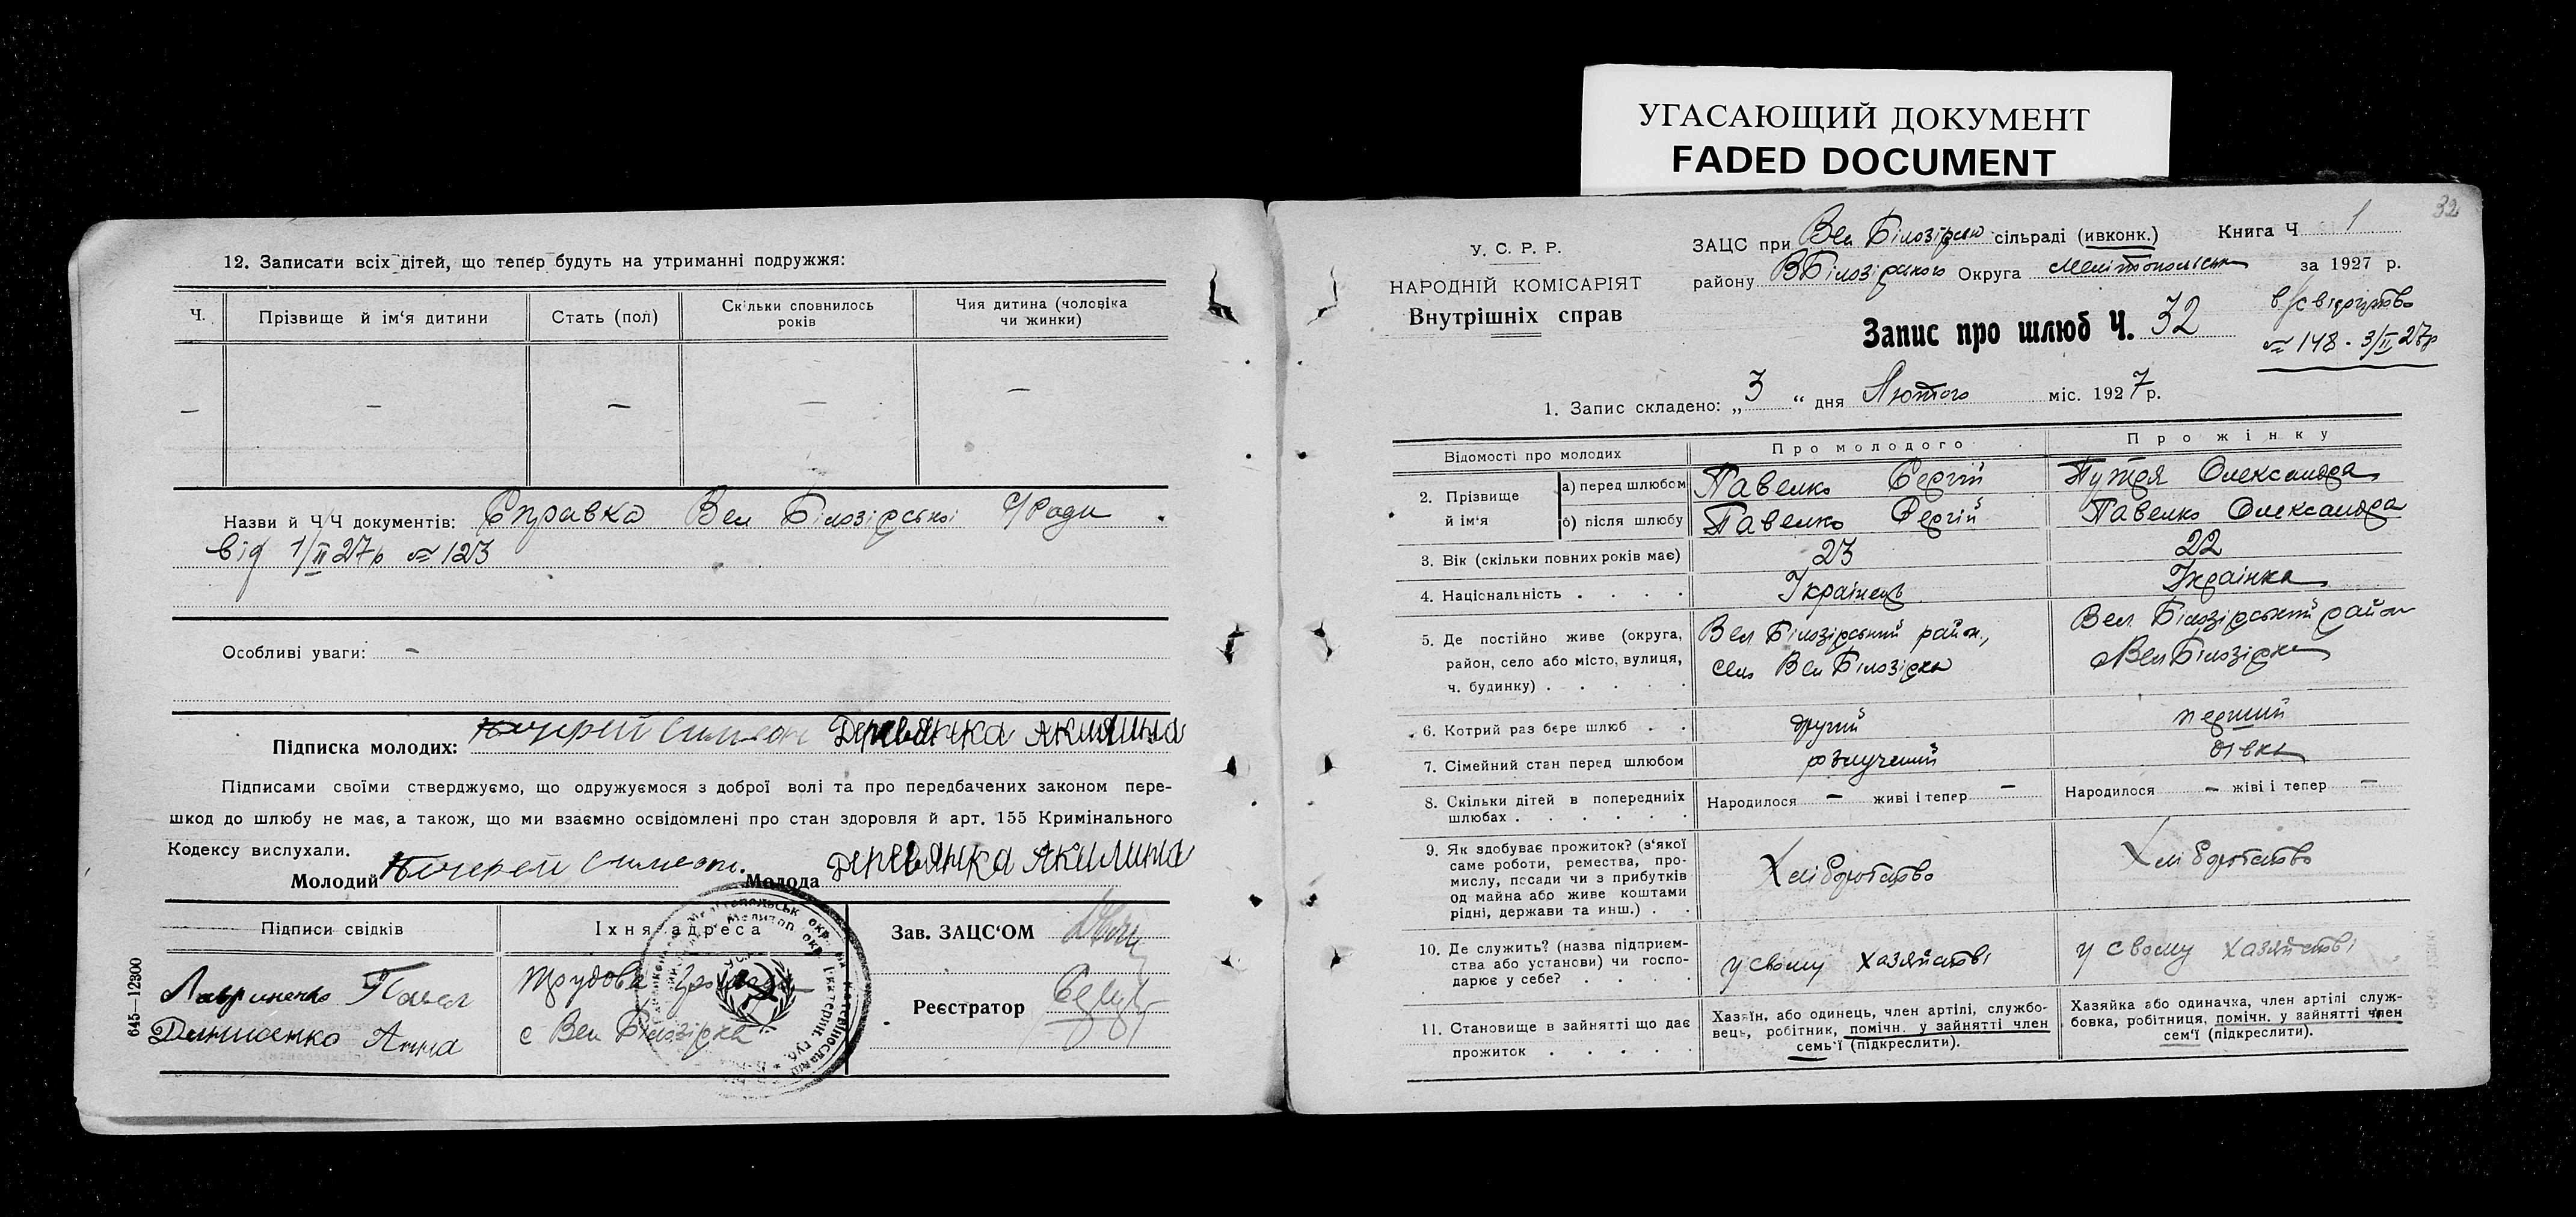 УГАСАЮЩИЙ ДОКУМЕНТ
FADED DOCUMENT
12. Записати всіх дітей, що тепер будуть на утриманні подружжя:
Ч.
Прізвище й ім‘я дитини
Стать (пол)
Скільки сповнилось років
Чия дитина (чоловіка чи жинки)
— — — — —
Назви й Ч/Ч документів: Справка Вел Білозірської С/Ради
від 1/II 27р № 123
Особливі уваги: —
Підписка молодих: Деревянка Якилина
Підписами своїми стверджуємо, що одружуємося з доброї волі та про передбачених законом пере-
шкод до шлюбу не має, а також, що ми взаємно освідомлені про стан здоровля й арт. 155 Кримінального
Кодексу вислухали.
Молодий Молода Деревянка Якилина
Підписи свідків
Їхня адреса
Зав. ЗАЦС‘ОМ
Лавриненко Павел
Трудова
Реєстратор
Анна
с Вел Білозірка
645—12300
32
У. С. Р. Р.
НАРОДНІЙ КОМІСАРІЯТ
Внутрішніх справ
ЗАЦС при Вел Білозірській сільраді (ивконк.) Книга Ч 1
району ВБілозірського Округа Мелітопольськ за 1927 р.
Запис про шлюб Ч. 32
№ 148 - 3/II 27р
1. Запис складено: „3“ дня Лютого міс. 1927 р.
Відомості про молодих
Про молодого
Про жінку
2. Прізвище й ім‘я
а) перед шлюбом Павелко Сергій
Путря Олександра
б) після шлюбу Павелко Сергій
Павелко Олександра
3. Вік (скільки повних років має) 23
22
4. Національність Українець
Українка
5. Де постійно живе (округа,
район, село або місто, вулиця,
ч. будинку)
Вел Білозірський район,
село Вел Білозірка
Вел. Білозірський район
с Вел Білозірка
6. Котрий раз бере шлюб другий
перший
7. Сімейний стан перед шлюбом розлучений
дівка
8. Скільки дітей в попередниіх
шлюбах
Народилося — живі і тепер —
Народилося — живі і тепер —
9. Як здобуває прожиток? (з‘якої
саме роботи, ремества, про-
мислу, посади чи з прибутків
од майна або живе коштами
рідні, держави та инш.)
Хліборобство
Хліборобство
10. Де служить? (назва підприєм-
ства або установи) чи госпо-
дарює у себе?
у свому хазяйстві
у свому хазяйстві
11. Становище в зайнятті що дає
прожиток
Хазяїн, або одинець, член артілі, службо-
вець, робітник, помічн. у зайнятті член
семь‘ї (підкреслити).
Хазяйка або одиначка, член артілі служ-
бовка, робітниця, помічн. у зайнятті член
сем‘ї (підкреслити).